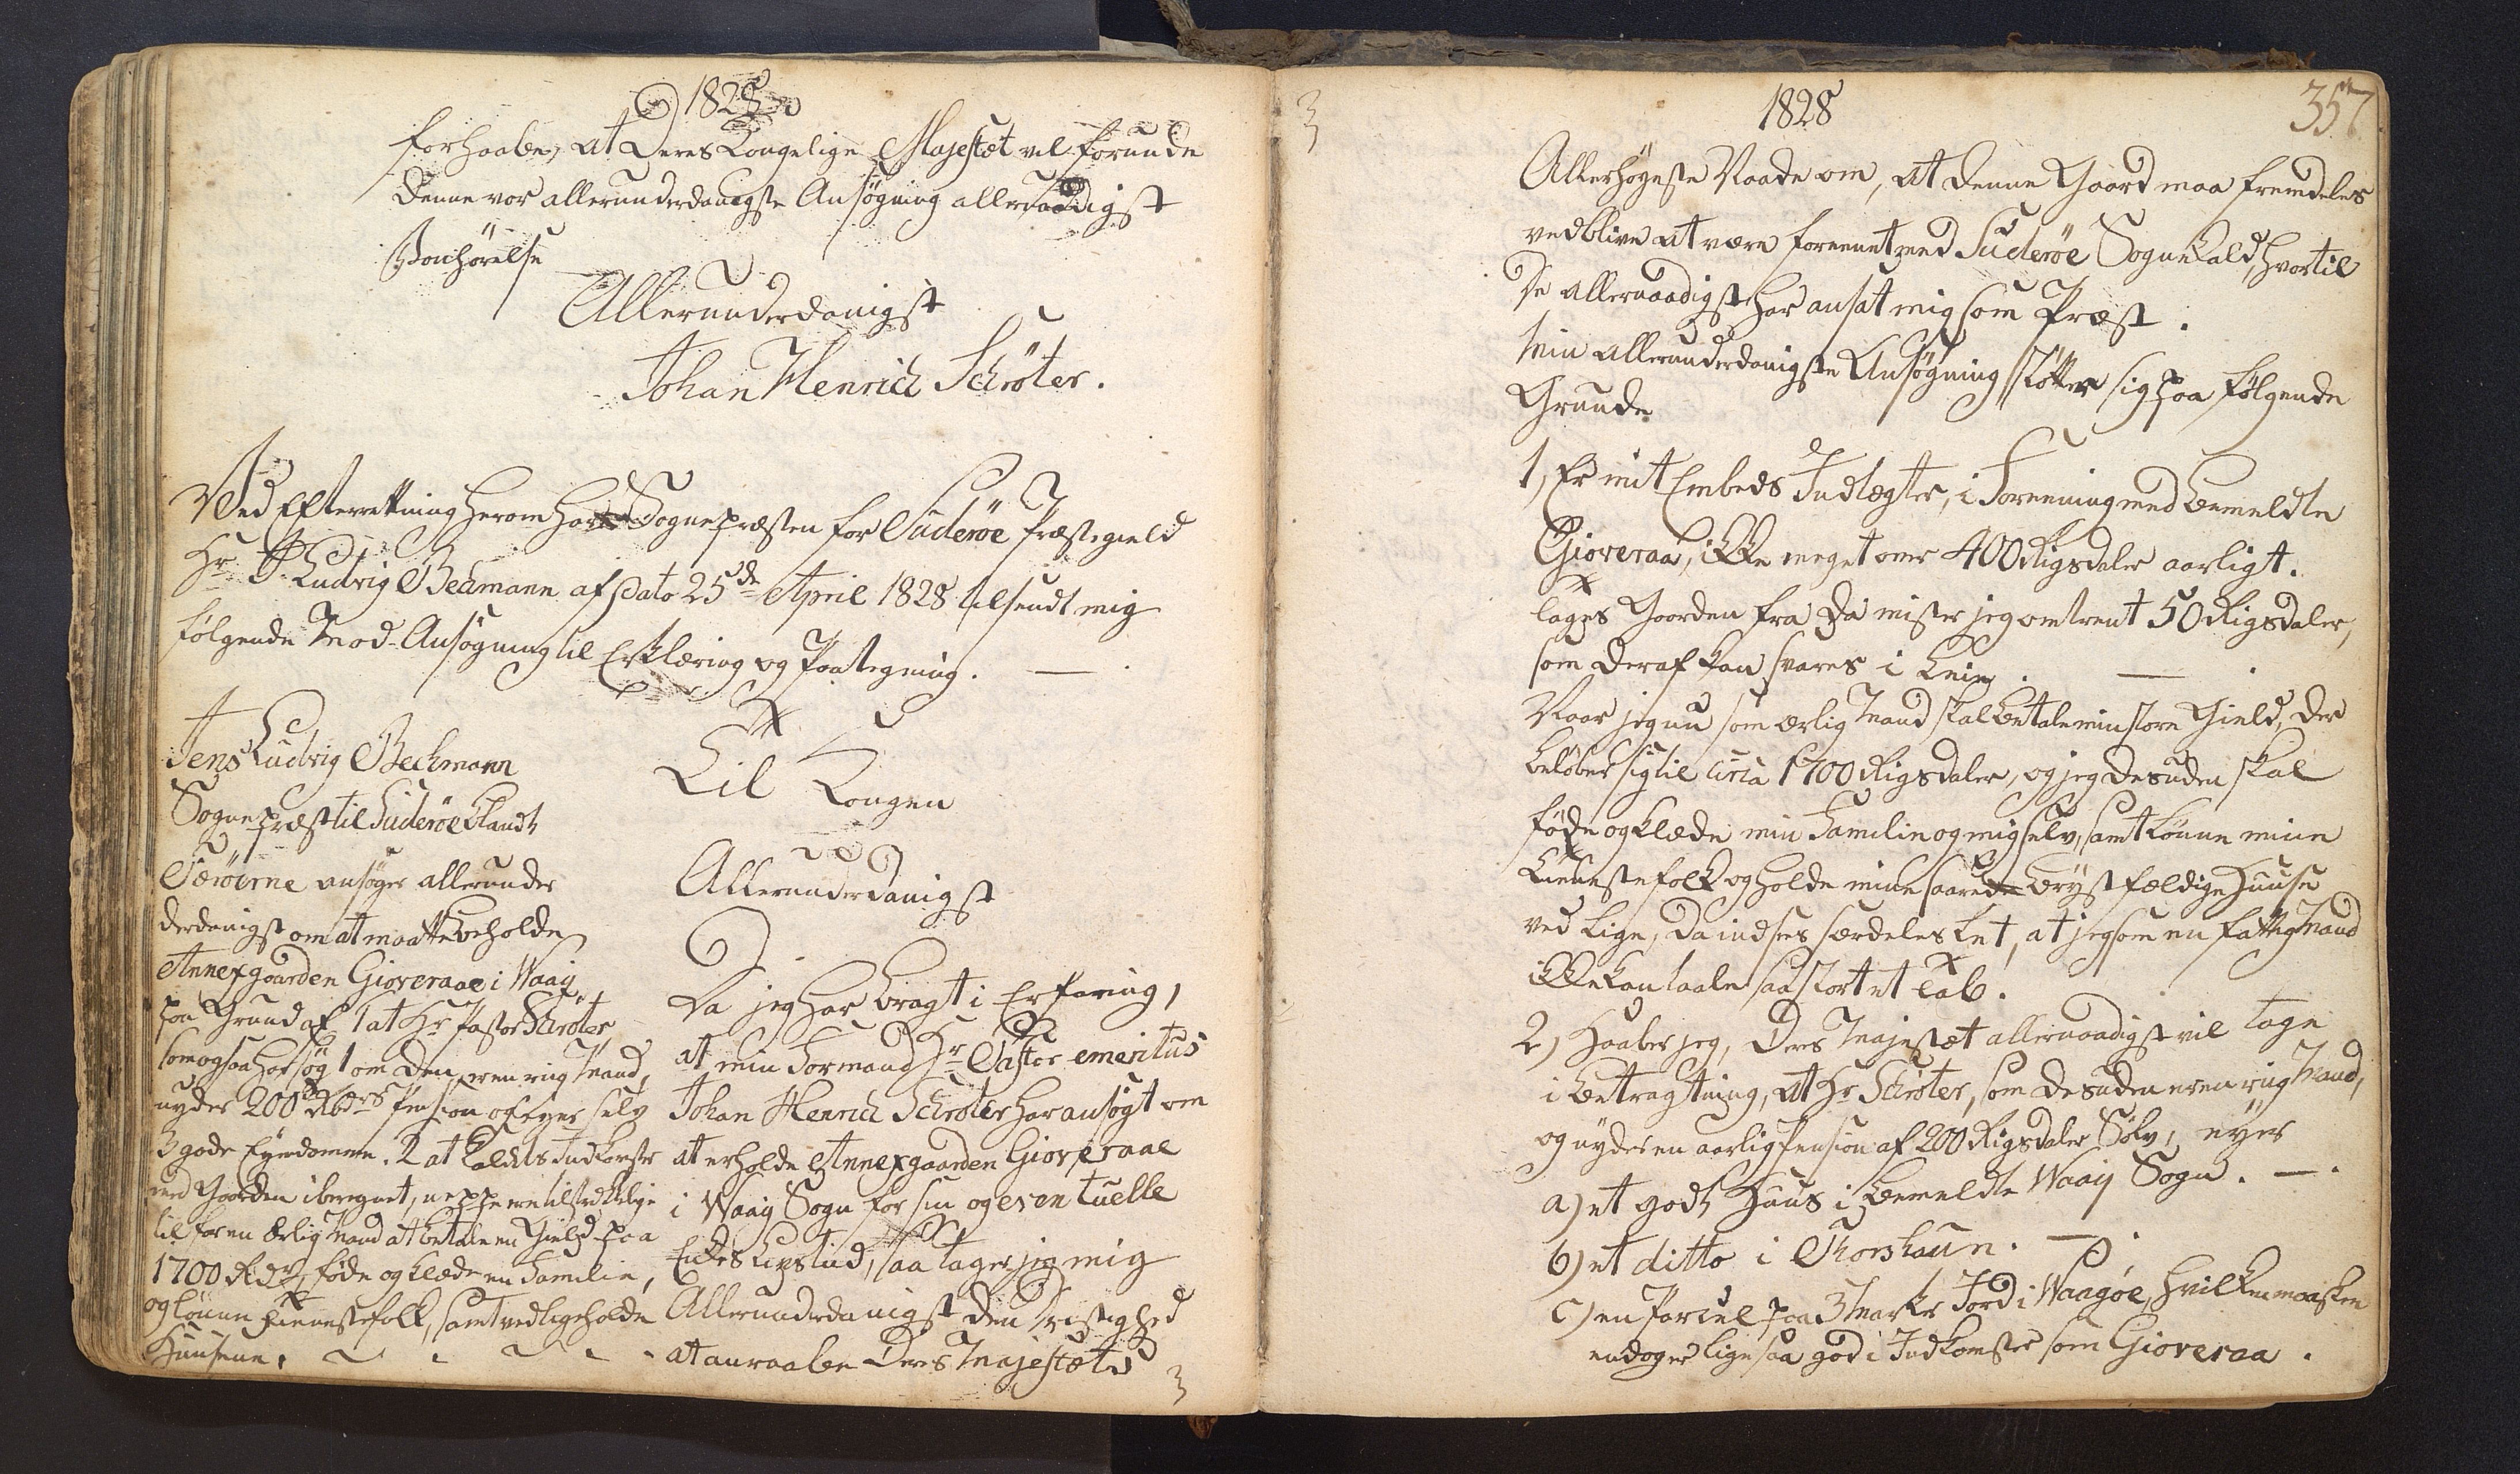 1828
forhaabe, at Deres Kongelige Majestæt vil forunde
denne vor allerunderdanigste Ansøgning allernaadigst
Bønhørelse
Allerunderdanigst
Johan Henrich Schrøter.
Ved Efterretning herom har Sognepræsten for Suderöe Præstegield
Hr J. Ludvig Beckmann af Dato 25de April 1828 tilsendt mig
følgende Mod-Ansøgning til Erklæring og Paategning. —
Jens Ludvig Bechmann
Sognepræst til Suderöe blandt
Færöerne ansøger allerunder
derdanigst om at maatte beholde
Annexgaarden Gioveraae i Waaij
paa Grund af 1 at Hr Pastor Schrøter
som ogsaa har søgt om den, er en riig Mand,
nyder 200 Rbdrs Pension og eyer selv
3 gode Eyendomme. 2 at Kaldets Indkomster
med Gaarden iberegnet, neppe ere tilstrækkelige
til for en ærlig Mand at betale en Gield paa
1700 Rdr, føde og klæde en Familie,
og lönne Tienestefolk, samt vedligeholde
Huusene.
Til Kongen
Allerunderdanigst
Da jeg har bragt i Erfaring,
at min Formand Hr Pastor emeritus
Johan Henrich Schrøter har ansøgt om
at erholde Annexgaarden Gioveraae
i Waaij Sogn for sin og eventuelle
Enkes Livstid, saa tager jeg mig
Allerunderdanigst den Dristighed
at anraabe Deres Majestæts
3
3
1828
357
Allerhøyeste Naade om, at denne Gaard maa fremdeles
vedblive at være forenet med Suderöe Sognekald, hvortil
De allernaadigst har ansat mig som Præst.
Min allerunderdanigste Ansøgning støtter sig paa følgende
Grunde
1, Er mit Embeds Indtægter, i Forening med bemeldte
Gioveraa, ikke meget over 400 Rigsdaler aarligt.
tages Gaarden fra da mister jeg omtrent 50 Rigsdaler,
som deraf kan svares i Leie. —
Naar jeg nu som ærlig Mand skal betale min store Gield, der
beløber sig til circa 1700 Rigsdaler, og jeg desuden skal
føde og klæde min Familie og mig selv, samt lönne mine
Tienestefolk og holde mine saare brystfældige Huuse
ved lige, da indsees særdeles let, at jeg som en fattig Mand
ikke kan taale saa stort et Tab.
2) Haaber jeg, Deres Majestæt allernaadigst vil tage
i Betragtning, at Hr Schrøter, som desuden er en riig Mand,
og nyder en aarlig Pension af 200 Rigsdaler Sølv, eyer
a) et godt Huus i bemeldte Waaij Sogn. —
b) et ditto i Thorshaun. —
c) en Parcel paa 3 Marker Jord i Waagöe, hvilken maaskee
endog er ligesaa god i Indkomster som Gioveraa.